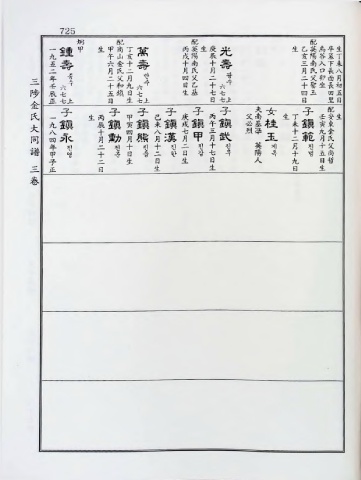 725
生丁未八月初五日
生
配安東金氏父尚哲
壬寅九月十五日生
配英陽南氏父聖玉
乙亥三月二十四日
生
光壽 광수 六七上
庚辰十月二十七日
生
配英陽南氏父乙基
丙戌十月四日生
萬壽 만수 六七上
丁亥十二月九日生
配南山金氏父和鎮
甲午六月二十五日
生
炯甲
鍾壽 종수 六七上
一九五二年壬辰正
子鎭範 진범
丁未十二月十九日
生
女桂玉 계옥
夫南基源 英陽人
父必烈
子鎭武 진무
丙午三月十七日生
子鎭甲 진갑
庚戌七月二日生
子鎭漢 진한
己未八月十二日生
子鎭熊 진웅
甲寅四月十日生
子鎭勳 진훈
丙辰十月二十二日
生
子鎭永 진영
一九八四年甲子正
三陟金氏大同譜 三卷